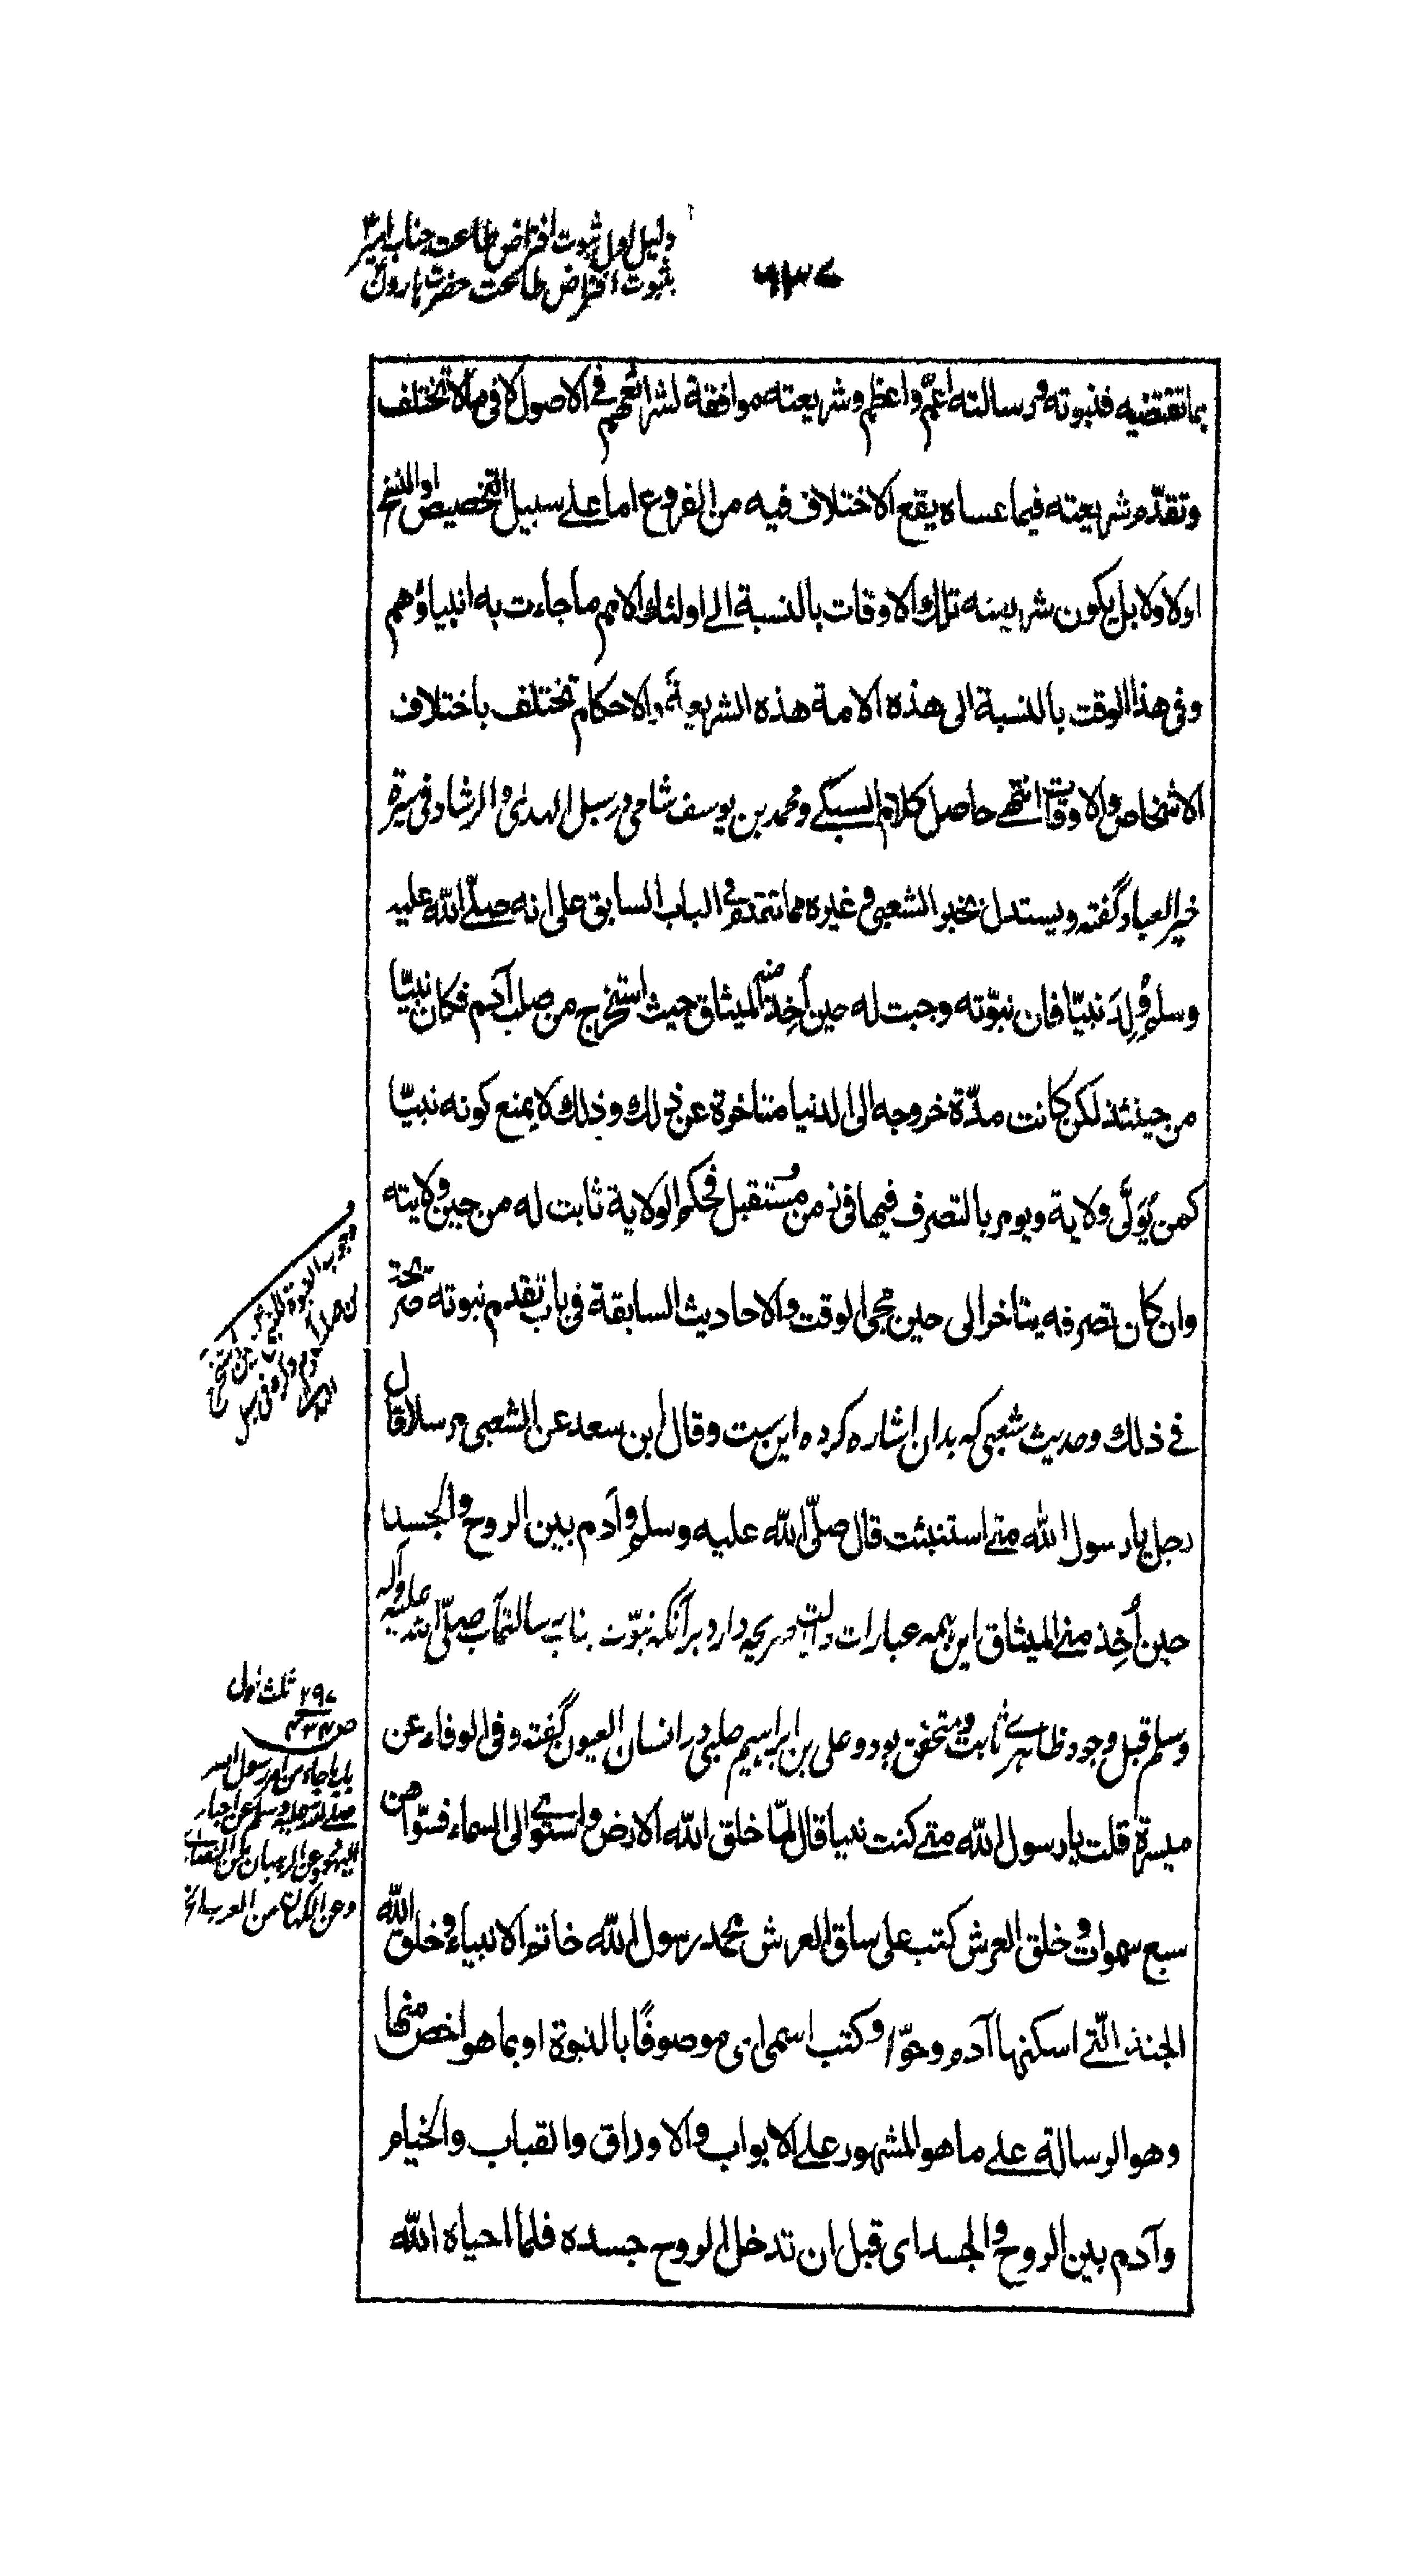 دلیل اول ثبوت افتراض طاعت جناب امیر
بثبوت افتراض طاعت حضرت هارون
۶۳۷
بما تقتضيه فنبوته ورسالته اعم واعظم وشريعته موافقة لشرائعهم في الاصول لا في ما لا تختلف
وتقدّم شريعته فيما عساه يقع الاختلاف فيه من الفروع اما على سبيل التخصيص او النسخ
اولا ولا بل يكون شريعته تلك الاوقات بالنسبة الى اولئك الامم ما جاءت به انبياؤهم
وفى هذا الوقت بالنسبة الى هذه الامة هذه الشريعة والاحكام تختلف باختلاف
الاشخاص والاوقات انتهى حاصل كلام السبكي ومحمد بن يوسف شامى در سبل الهدى والرشاد فى سيرة
خير العباد گفته ويستدل بخبر الشعبى وغيره مما تقدم فى الباب السابق على انه صلّى الله عليه
وسلم وُلِدَ نبيّا فان نبوّته وجبت له حين أُخِذ منه الميثاق حيث استخرج من صلب آدم فكان نبيّا
من حينئذ لكن كانت مدّة خروجه الى الدنيا متاخرة عن ذلك وذلك لا يمنع كونه نبيّا
كمن يُوَلَّى ولاية ويومر بالتصرف فيها فى زمن مُستقبل فحكم الولاية ثابت له من حين ولايته
وان كان تصرفه يتاخر الى حين مجى الوقت والاحاديث السابقة فى باب تقدم نبوته صريحة
في ذلك وحديث شعبى كه بدان اشاره كرده اين ست وقال ابن سعد عن الشعبى مرسلا قال
رجل يا رسول الله متى استنبئت قال صلّى الله عليه وسلم وآدم بين الروح والجسد
حين أُخِذ منى الميثاق اين همه عبارات دلالت صريحه دارد بر آنكه نبوّت جناب رسالتمآب صلّى الله عليه وآله
وسلم قبل وجود ظاهرى ثابت ومتحقق بود و على بن ابراهيم حلبى در انسان العيون گفته وفى الوفاء عن
ميسرة قلت يا رسول الله متى كنت نبيا قال لمّا خلق الله الارض واستوى الى السماء فسوّاهن
سبع سموات وخلق العرش كتب على ساق العرش محمد رسول الله خاتم الانبياء وخلق الله
الجنة الّتى اسكنها آدم وحوّا وكتب اسمى اى موصوفًا بالنبوة او بما هو اخص منها
وهو الرسالة على ما هو المشهور على الابواب والاوراق والقباب والخيام
وآدم بين الروح والجسد اى قبل ان تدخل الروح جسده فلما احياه الله
وجوب النبوة للنبى
من صلب آدم
۲۹۷ ثلث اول
باب ما جاء من امر رسول الله
صلى الله عليه وسلم عن احبار
اليهود وعن الرهبان من النصارى
وعن الكهان من العرب الخ